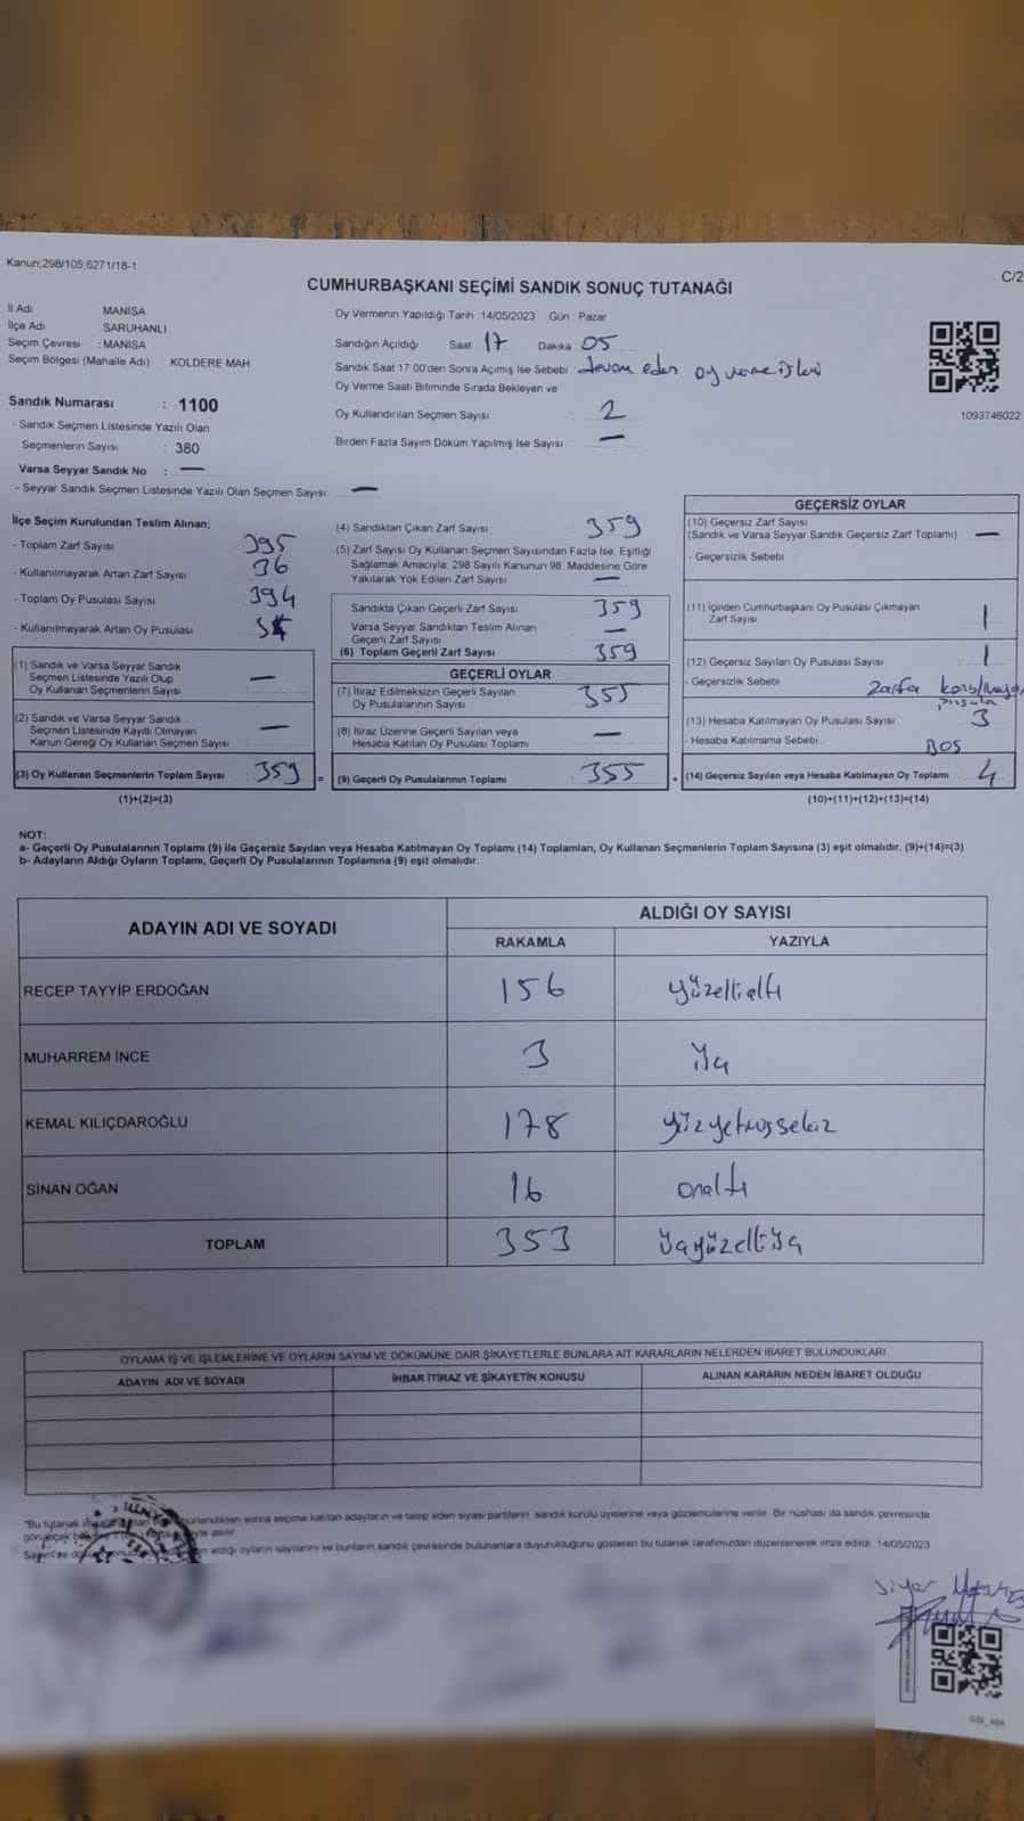 Kanun;298/105;6271/18-1
C/2
CUMHURBAŞKANI SEÇİMİ SANDIK SONUÇ TUTANAĞI
İl Adı MANİSA
İlçe Adı SARUHANLI
Seçim Çevresi : MANİSA
Seçim Bölgesi (Mahalle Adı) KOLDERE MAH
Sandık Numarası : 1100
- Sandık Seçmen Listesinde Yazılı Olan
Seçmenlerin Sayısı : 380
Varsa Seyyar Sandık No : —
- Seyyar Sandık Seçmen Listesinde Yazılı Olan Seçmen Sayısı: —
Oy Vermenin Yapıldığı Tarih :14/05/2023 Gün : Pazar
Sandığın Açıldığı Saat 17 Dakika 05
Sandık Saat 17.00'den Sonra Açılmış İse Sebebi: devam eden oy verme işleri
Oy Verme Saati Bitiminde Sırada Bekleyen ve
Oy Kullandırılan Seçmen Sayısı 2
Birden Fazla Sayım Döküm Yapılmış İse Sayısı —
1093746022
İlçe Seçim Kurulundan Teslim Alınan;
- Toplam Zarf Sayısı 395
- Kullanılmayarak Artan Zarf Sayısı 36
- Toplam Oy Pusulası Sayısı 394
- Kullanılmayarak Artan Oy Pusulası
(1) Sandık ve Varsa Seyyar Sandık
Seçmen Listesinde Yazılı Olup
Oy Kullanan Seçmenlerin Sayısı —
(2) Sandık ve Varsa Seyyar Sandık
Seçmen Listesinde Kayıtlı Olmayan
Kanun Gereği Oy Kullanan Seçmen Sayısı —
(3) Oy Kullanan Seçmenlerin Toplam Sayısı 359 =
(1)+(2)=(3)
(4) Sandıktan Çıkan Zarf Sayısı 359
(5) Zarf Sayısı Oy Kullanan Seçmen Sayısından Fazla İse, Eşitliği
Sağlamak Amacıyla; 298 Sayılı Kanunun 98. Maddesine Göre
Yakılarak Yok Edilen Zarf Sayısı —
Sandıkta Çıkan Geçerli Zarf Sayısı 359
Varsa Seyyar Sandıktan Teslim Alınan
Geçerli Zarf Sayısı —
(6) Toplam Geçerli Zarf Sayısı 359
GEÇERLİ OYLAR
(7) İtiraz Edilmeksizin Geçerli Sayılan
Oy Pusulalarının Sayısı 355
(8) İtiraz Üzerine Geçerli Sayılan veya
Hesaba Katılan Oy Pusulası Toplamı —
(9) Geçerli Oy Pusulalarının Toplamı 355 +
GEÇERSİZ OYLAR
(10) Geçersiz Zarf Sayısı
(Sandık ve Varsa Seyyar Sandık Geçersiz Zarf Toplamı) —
- Geçersizlik Sebebi
(11) İçinden Cumhurbaşkanı Oy Pusulası Çıkmayan
Zarf Sayısı 1
(12) Geçersiz Sayılan Oy Pusulası Sayısı 1
- Geçersizlik Sebebi Zarfa
pusula
(13) Hesaba Katılmayan Oy Pusulası Sayısı 3
- Hesaba Katılmama Sebebi BOS
(14) Geçersiz Sayılan veya Hesaba Katılmayan Oy Toplamı 4
(10)+(11)+(12)+(13)=(14)
NOT:
a- Geçerli Oy Pusulalarının Toplamı (9) ile Geçersiz Sayılan veya Hesaba Katılmayan Oy Toplamı (14) Toplamları, Oy Kullanan Seçmenlerin Toplam Sayısına (3) eşit olmalıdır. (9)+(14)=(3)
b- Adayların Aldığı Oyların Toplamı, Geçerli Oy Pusulalarının Toplamına (9) eşit olmalıdır.
ADAYIN ADI VE SOYADI
ALDIĞI OY SAYISI
RAKAMLA YAZIYLA
RECEP TAYYİP ERDOĞAN 156 yüzellialtı
MUHARREM İNCE 3 üç
KEMAL KILIÇDAROĞLU 178 yüzyetmişsekiz
SİNAN OĞAN 16 onaltı
TOPLAM 353 üçyüzelliüç
OYLAMA İŞ VE İŞLEMLERİNE VE OYLARIN SAYIM VE DÖKÜMÜNE DAİR ŞİKAYETLERLE BUNLARA AİT KARARLARIN NELERDEN İBARET BULUNDUKLARI
ADAYIN ADI VE SOYADI İHBAR İTİRAZ VE ŞİKAYETİN KONUSU ALINAN KARARIN NEDEN İBARET OLDUĞU
"Bu tutanak sonra seçime katılan adayların ve talep eden siyasi partilerin sandık kurulu üyelerine veya gözlemcilerine verilir. Bir nüshası da sandık çevresinde
asılır
aldığı oyların sayılarını ve bunların sandık çevresinde bulunanlara duyurulduğunu gösteren bu tutanak tarafımızdan düzenlenerek imza edildi. 14/05/2023